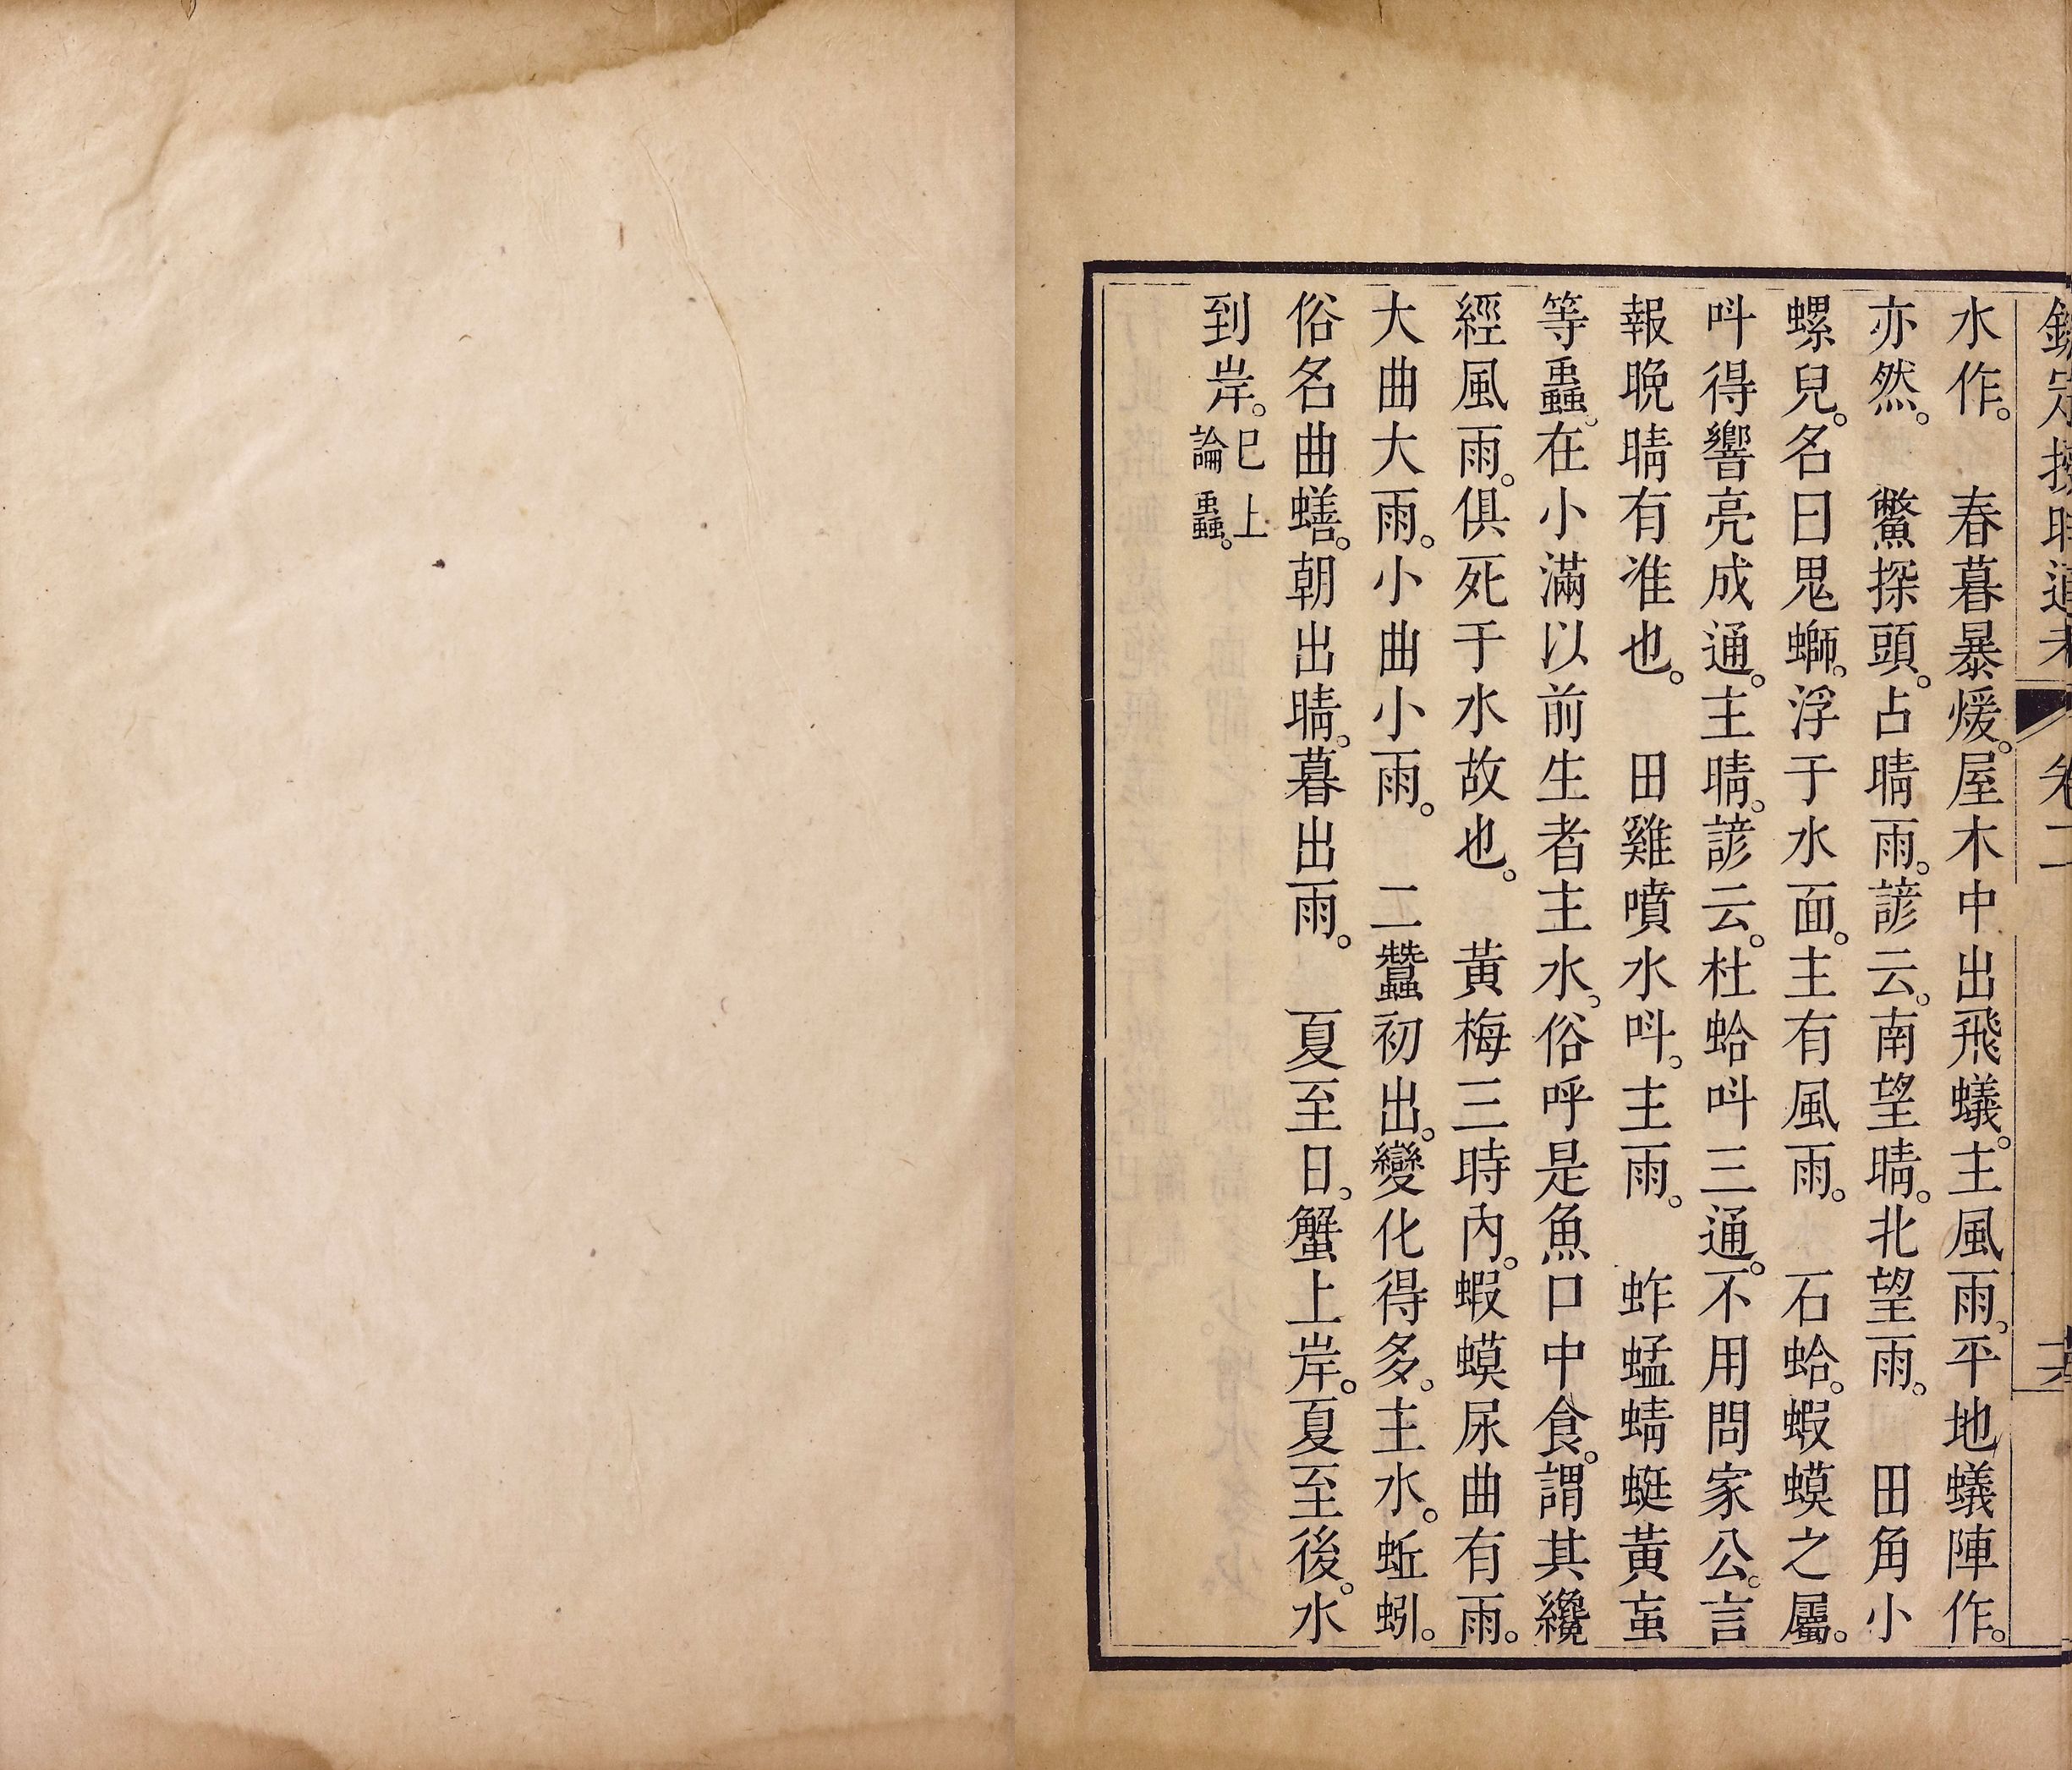 欽定授時通考 卷二
水作。 春暮暴煖。屋木中出飛蟻。主風雨。平地蟻陣作。
亦然。 鱉探頭。占晴雨。諺云。南望晴。北望雨。 田角小
螺兒。名曰鬼螄。浮于水面。主有風雨。 石蛤。蝦蟆之屬。
呌得響亮成通。主晴。諺云。杜蛤呌三通。不用問家公。言
報晚晴有准也。 田雞噴水呌。主雨。 蚱蜢蜻蜓黃䖟
等蟲。在小滿以前生者主水。俗呼是魚口中食。謂其纔
經風雨。俱死于水故也。 黃梅三時內。蝦蟆尿曲有雨。
大曲大雨。小曲小雨。 二蠶初出。變化得多。主水。蚯蚓。
俗名曲蟮。朝出晴。暮出雨。 夏至日。蟹上岸。夏至後。水
到岸。巳上論蟲。